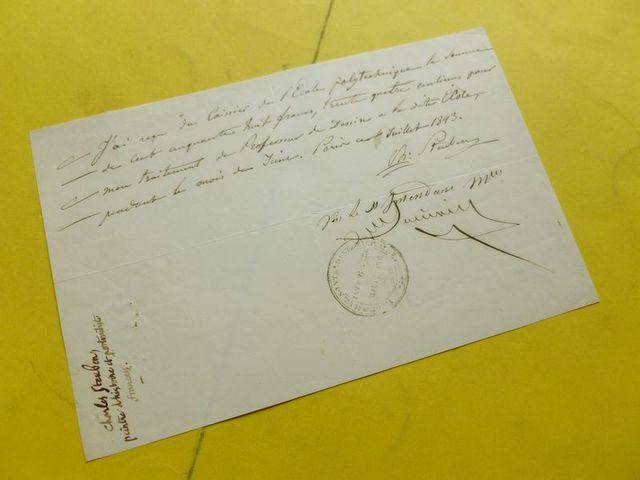 J'ai reçu du Caissier de l'École polytechnique la Somme
de cent cinquante huit francs, trente quatre centimes pour
mon traitement de Professeur de Dessin a la dite École,
pendant le mois de Juin. Paris ce Juillet 1843.
Bn Steuben
Vu le Intendant Mre
Charles Steuben,
peintre d'histoire et portraitiste
français.